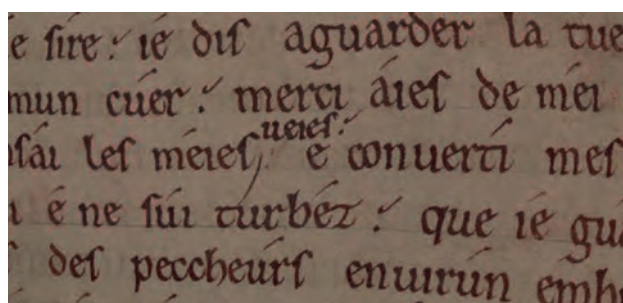 e ſire: ié diſ aguarder la tue
mun cúer: merci áieſ de méi
nſái leſ méieſ ueieſ: é conuerti meſ
i é ne ſúi turbéz: que ié gu
ſ deſ peccheúrſ enuirún emb